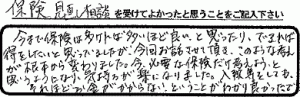 保険見直し相談を受けてよかったと思うことをご記入下さい
今まで保険は多ければ多いほど良い、と思ったり、できれば
得をしたいと思っていましたが、今回お話させて頂き、このような考え
が根本から変わりました。今、必要な保険だけ考えよう、と
思うようになり、気持ちが楽になりました。入院費等をしても、
それほどお金がかからない、ということがわかり良かったです